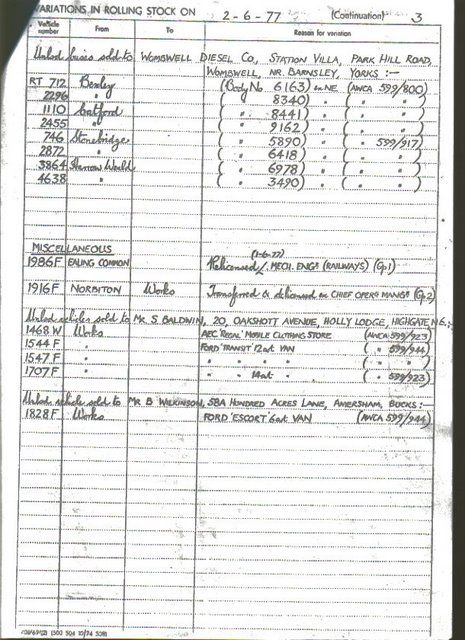 VARIATIONS IN ROLLING STOCK ON 2-6-77 (Continuation) 3
Vehicle number From To Reason for variation
Unlicd buses sold to WOMBWELL DIESEL CO, STATION VILLA, PARK HILL ROAD,
WOMBWELL, NR. BARNSLEY, YORKS :-
RT 712 Bexley (Body No. 6163) ex NE. (AWCA 599/800)
2296 " ( " 8340) " ( " " )
1110 Catford ( " 8441) " ( " " )
2455 " ( " 9162) " ( " " )
746 Stonebridge ( " 5890) " ( " 599/917)
2872 " ( " 6418) " ( " " )
3864 Harrow Weald ( " 6978) " ( " " )
4638 " ( " 3490) " ( " " )
MISCELLANEOUS
(1-6-77)
1986F EALING COMMON Relicensed f. MECH. ENGR (RAILWAYS) (Gp1)
1916F NORBITON Works Transferred & delicensed ex CHIEF OPERG MANGR (Gp2)
Unlicd vehicles sold to MR S BALDWIN, 20, OAKSHOTT AVENUE, HOLLY LODGE, HIGHGATE N6.;-
1468.W Works AEC 'REGAL' MOBILE CLOTHING STORE (AWCA 599/923)
1544 F " FORD 'TRANSIT' 12 cwt VAN ( " 599/944)
1547F " " " " " ( " " )
1707F " " " 14 cwt " ( " 599/923)
Unlicd vehicle sold to MR B WILKINSON, 58A HUNDRED ACRES LANE, AMERSHAM, BUCKS :-
1828F Works FORD 'ESCORT' 6 cwt VAN (AWCA 599/944)